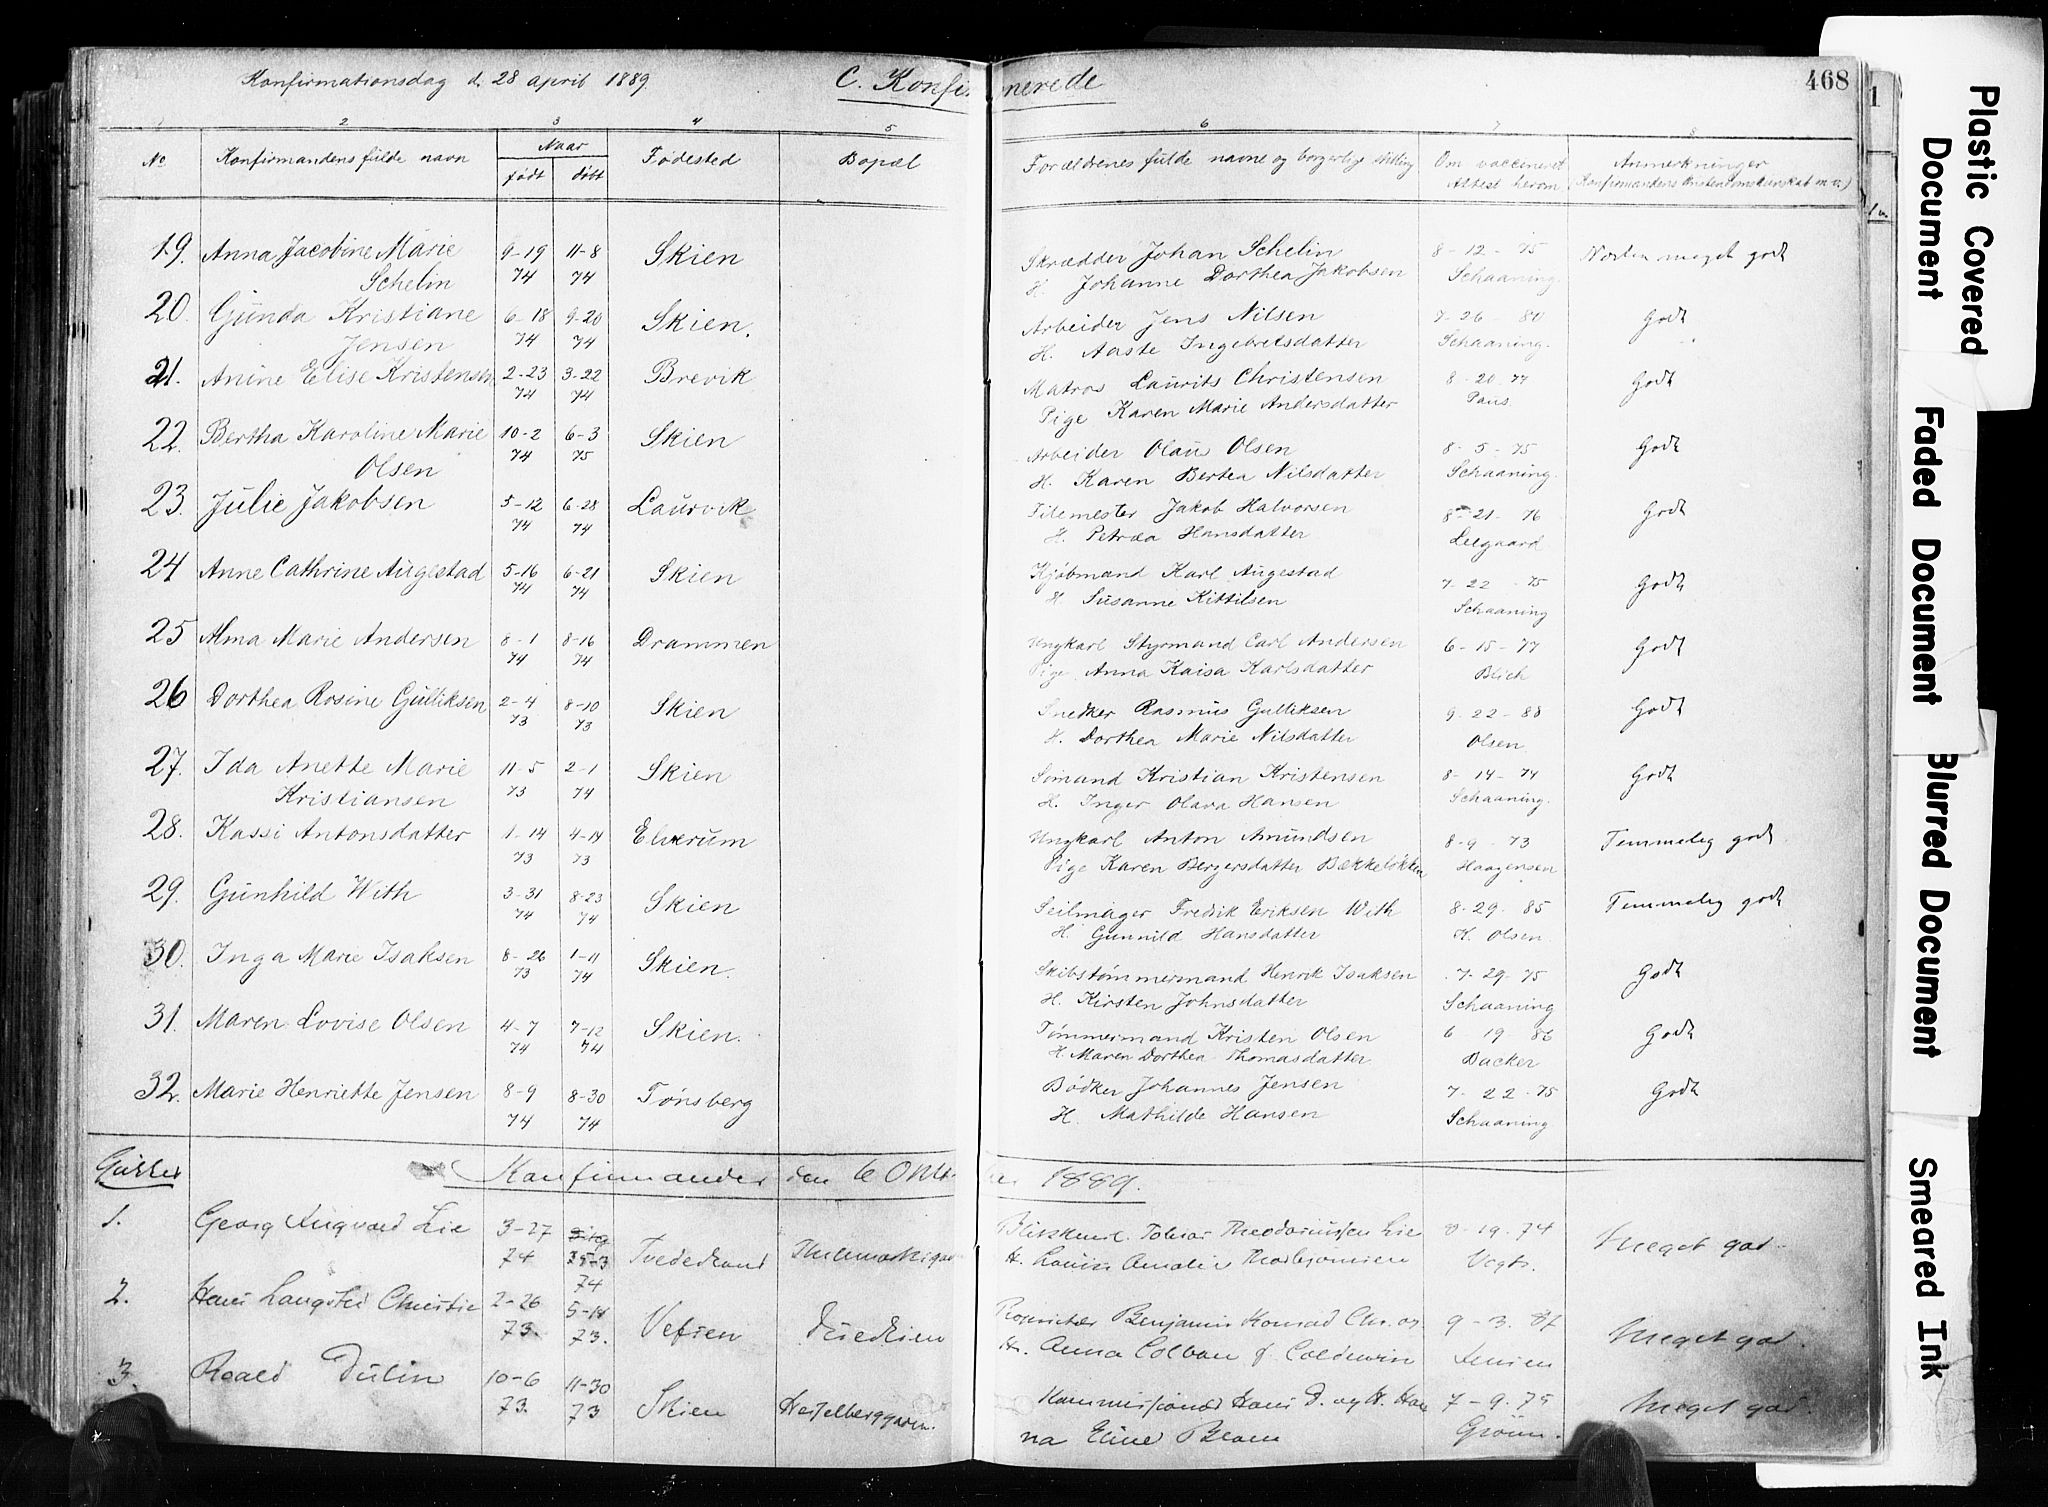 Konfirmationsdag d. 28 april 1889. C. Konfirmerede 468
1 2 3 4 5 6 7 8
No Konfirmandens fulde navn Naar født døbt Fødested Bopæl Forældrenes fulde navne og borgerlige stilling Om vaccineret Attest herom Anmerkninger (Konfirmandens kristendomskundskab m.v.)
19. Anna Jacobine Marie 9-19 11-8 Skien Skrædder Johan Schelin 8-12-75 Næsten meget godt
Schelin 74 74 H. Johanne Dorthea Jakobsen Schaaning
20. Gunda Kristiane 6-18 9-20 Skien. Arbeider Jens Nilsen 7-26-80 Godt
Jensen 74 74 H. Aaste Ingebretsdatter Schaaning.
21. Anine Elise Kristensen 2-23 3-22 Brevik Matros Laurits Christensen 8-20-77 Godt
74 74 Pige Karen Marie Andersdatter Paus.
22. Bertha Karoline Marie 10-2 6-3 Skien Arbeider Olaus Olsen 8-5-75 Godt
Olsen 74 75 H. Karen Bertea Nilsdatter Schaaning.
23. Julie Jakobsen 5-12 6-28 Laurvik Filemester Jakob Halvorsen 8-21-76 Godt
74 74 H. Petræa Hansdatter Leegaard
24 Anne Cathrine Augestad 5-16 6-21 Skien Kjøbmand Karl Augestad 7-22-75 Godt
74 74 H. Susanne Kittilsen Schaaning
25 Alma Marie Andersen 8-1 8-16 Drammen Ungkarl Styrmand Carl Andersen 6-15-77 Godt
74 74 Pige Anna Kaisa Karlsdatter Blich
26 Dorthea Rosine Gulliksen 2-4 8-10 Skien Snedker Rasmus Gulliksen 9-22-88 Godt
73 73 H. Dorthea Marie Nilsdatter Olsen
27. Ida Anette Marie 11-5 2-1 Skien Sømand Kristian Kristensen 8-14-74 Godt
Kristiansen 73 74 H. Inger Olava Hansen Schaaning.
28. Kassi Antonsdatter 1-14 4-14 Elverum Ungkarl Anton Amundsen 8-9-73 Temmelig godt
73 73 Pige Karen Bergersdatter Bækkeløkken Haagensen
29. Gunhild With 3-31 8-23 Skien Seilmager Fredrik Eriksen With 8-29-85 Temmelig godt
74 74 H. Gunnild Hansdatter K. Olsen
30. Inga Marie Isaksen 8-26 1-11 Skien. Skibstømmermand Henrik Isaksen 7-29-75 Godt
73 74 H. Kirsten Johnsdatter Schaaning
31. Maren Lovise Olsen 4-7 7-12 Skien. Tømmermand Kristen Olsen 6 19-86 Godt
74 74 H. Maren Dorthea Thomasdatter Backer
32. Marie Henriette Jensen 8-9 8-30 Tønsberg Bødker Johannes Jensen 7-22-75 Godt
74 74 H. Mathilde Hansen Schaaning
Gutter Konfirmander den 6 Oktober 1889.
1. Georg Lie 3-27 Theodoriussen Lie 8-19-74
74 25-3 Tvedestrand H. Vogt. Meget god.
74
2. Hans Langsted Christie 2-26 5-18 Benjamin Konrad Chr. og 9-3-87
73. 73. Vefsen H. Anna Colban f. Jensen Meget god.
3. Roald Dulin 10-6 11-30 Kommissionær Hans D. og H. Han 7-9-75 Meget god.
73. 73 Skien Hesselberggaden. na Eline Grønn.
Plastic Covered Document
Faded Document
Blurred Document
Smeared Ink